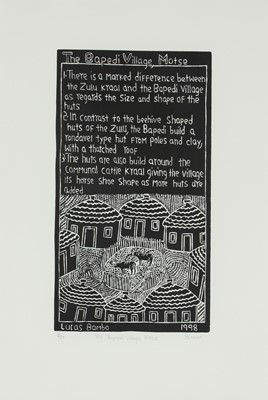 The Bapedi Village, Motse
1. There is a marked difference between
the Zulu kraal and the Bapedi Village
as regards the size and shape of the
huts
2. In contrast to the beehive shaped
huts of the Zulu, the Bapedi build a
rondavel type hut from poles and clay,
with a thatched roof
3. The huts are also build around the
Communal cattle kraal giving the village
its horse shoe shape as more huts are
added
Lucas Bambo 1998
The Bapedi Village, Motse